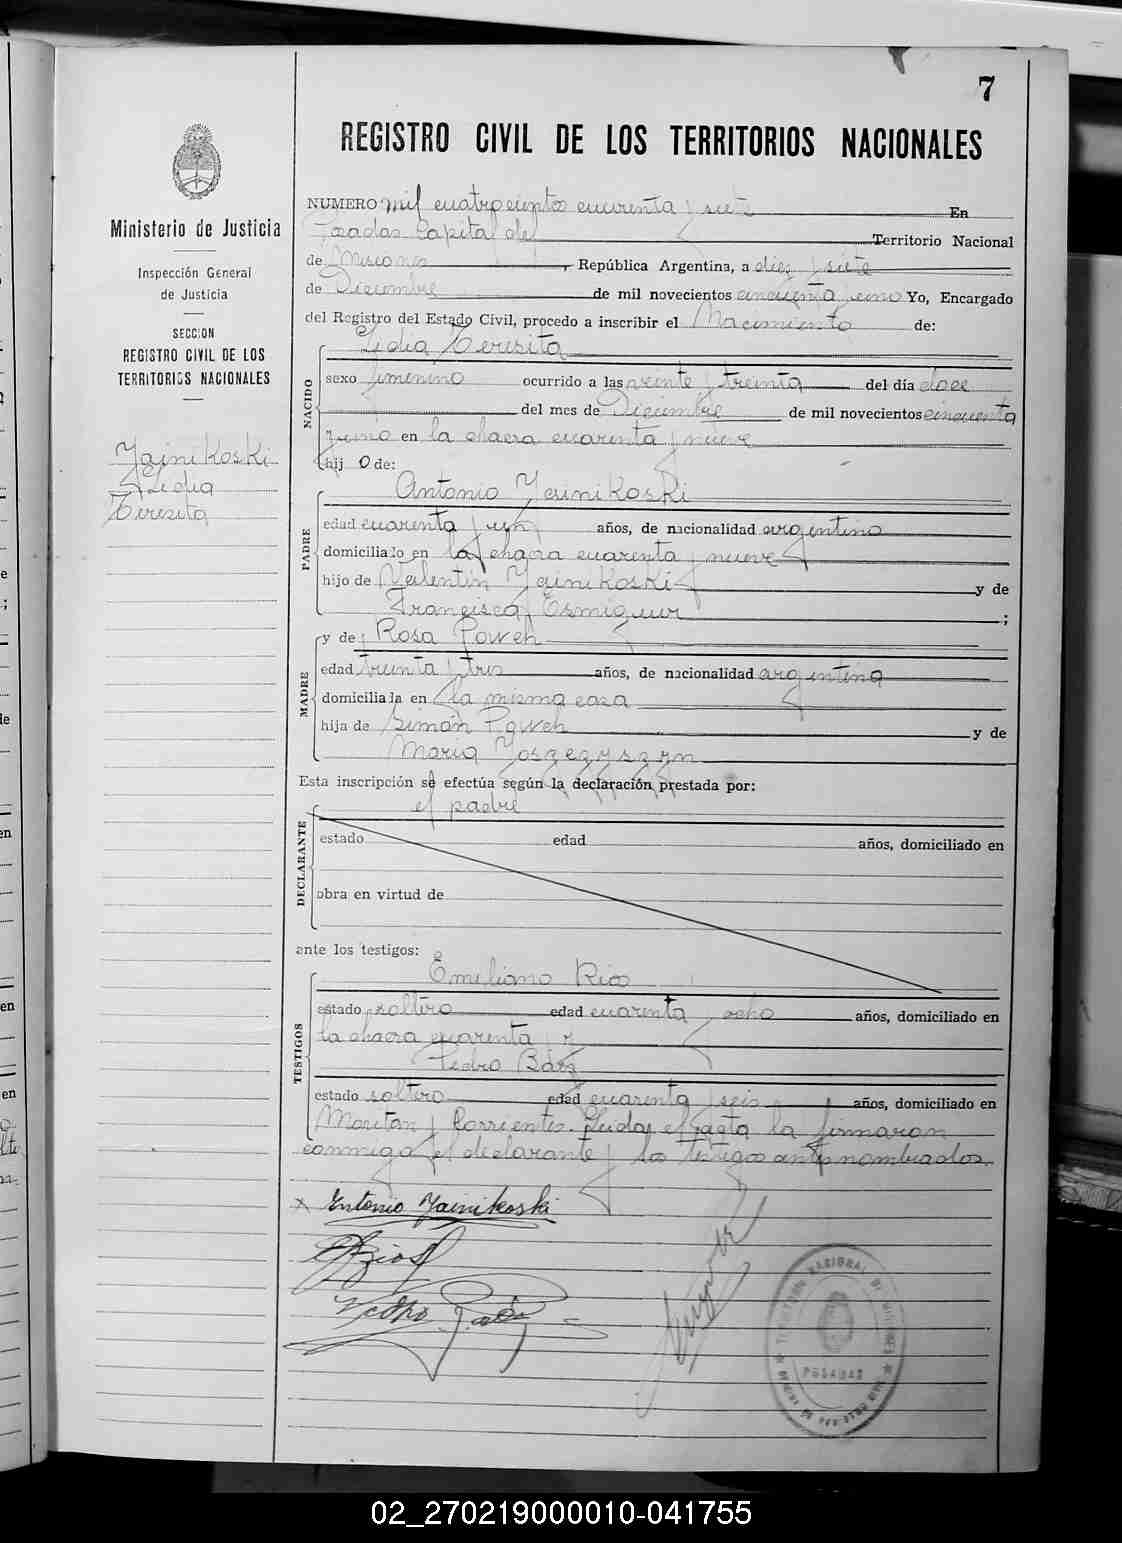 7
REGISTRO CIVIL DE LOS TERRITORIOS NACIONALES
Ministerio de Justicia
Inspección General
de Justicia
SECCION
REGISTRO CIVIL DE LOS
TERRITORIOS NACIONALES
Yainikoski
Lidia
Teresita
NUMERO mil cuatrocientos cuarenta y siete En
Posadas Capital del Territorio Nacional
de Misiones, República Argentina, a diez y siete
de Diciembre de mil novecientos cincuenta y uno Yo, Encargado
del Registro del Estado Civil, procedo a inscribir el Nacimiento de:
Lidia Teresita
NACIDO
sexo femenino ocurrido a las veinte y treinta del día doce
del mes de Diciembre de mil novecientos cincuenta
y uno en la chacra cuarenta y nueve
hijo de:
Antonio Yainikoski
PADRE
edad cuarenta y un años, de nacionalidad argentino
domiciliado en la chacra cuarenta y nueve
hijo de Valentin Yainikoski y de
Francisca ;
y de Rosa Poweh
MADRE
edad treinta y tres años, de nacionalidad argentina
domiciliada en la misma casa
hija de Simón Poweh y de
Maria
Esta inscripción se efectúa según la declaración prestada por:
el padre
DECLARANTE
estado edad años, domiciliado en
obra en virtud de
ante los testigos:
Emiliano Rios
TESTIGOS
estado soltero edad cuarenta y ocho años, domiciliado en
la chacra cuarenta y
Pedro Báez
estado soltero edad cuarenta y seis años, domiciliado en
Moritan y Corrientes. Leida el acta la firmaron
conmigo el declarante y los testigos antes nombrados.
x Antonio Yainikoski
ERios
Pedro Báez
TERRITORIO NACIONAL DE MISIONES
POSADAS
02_270219000010-041755